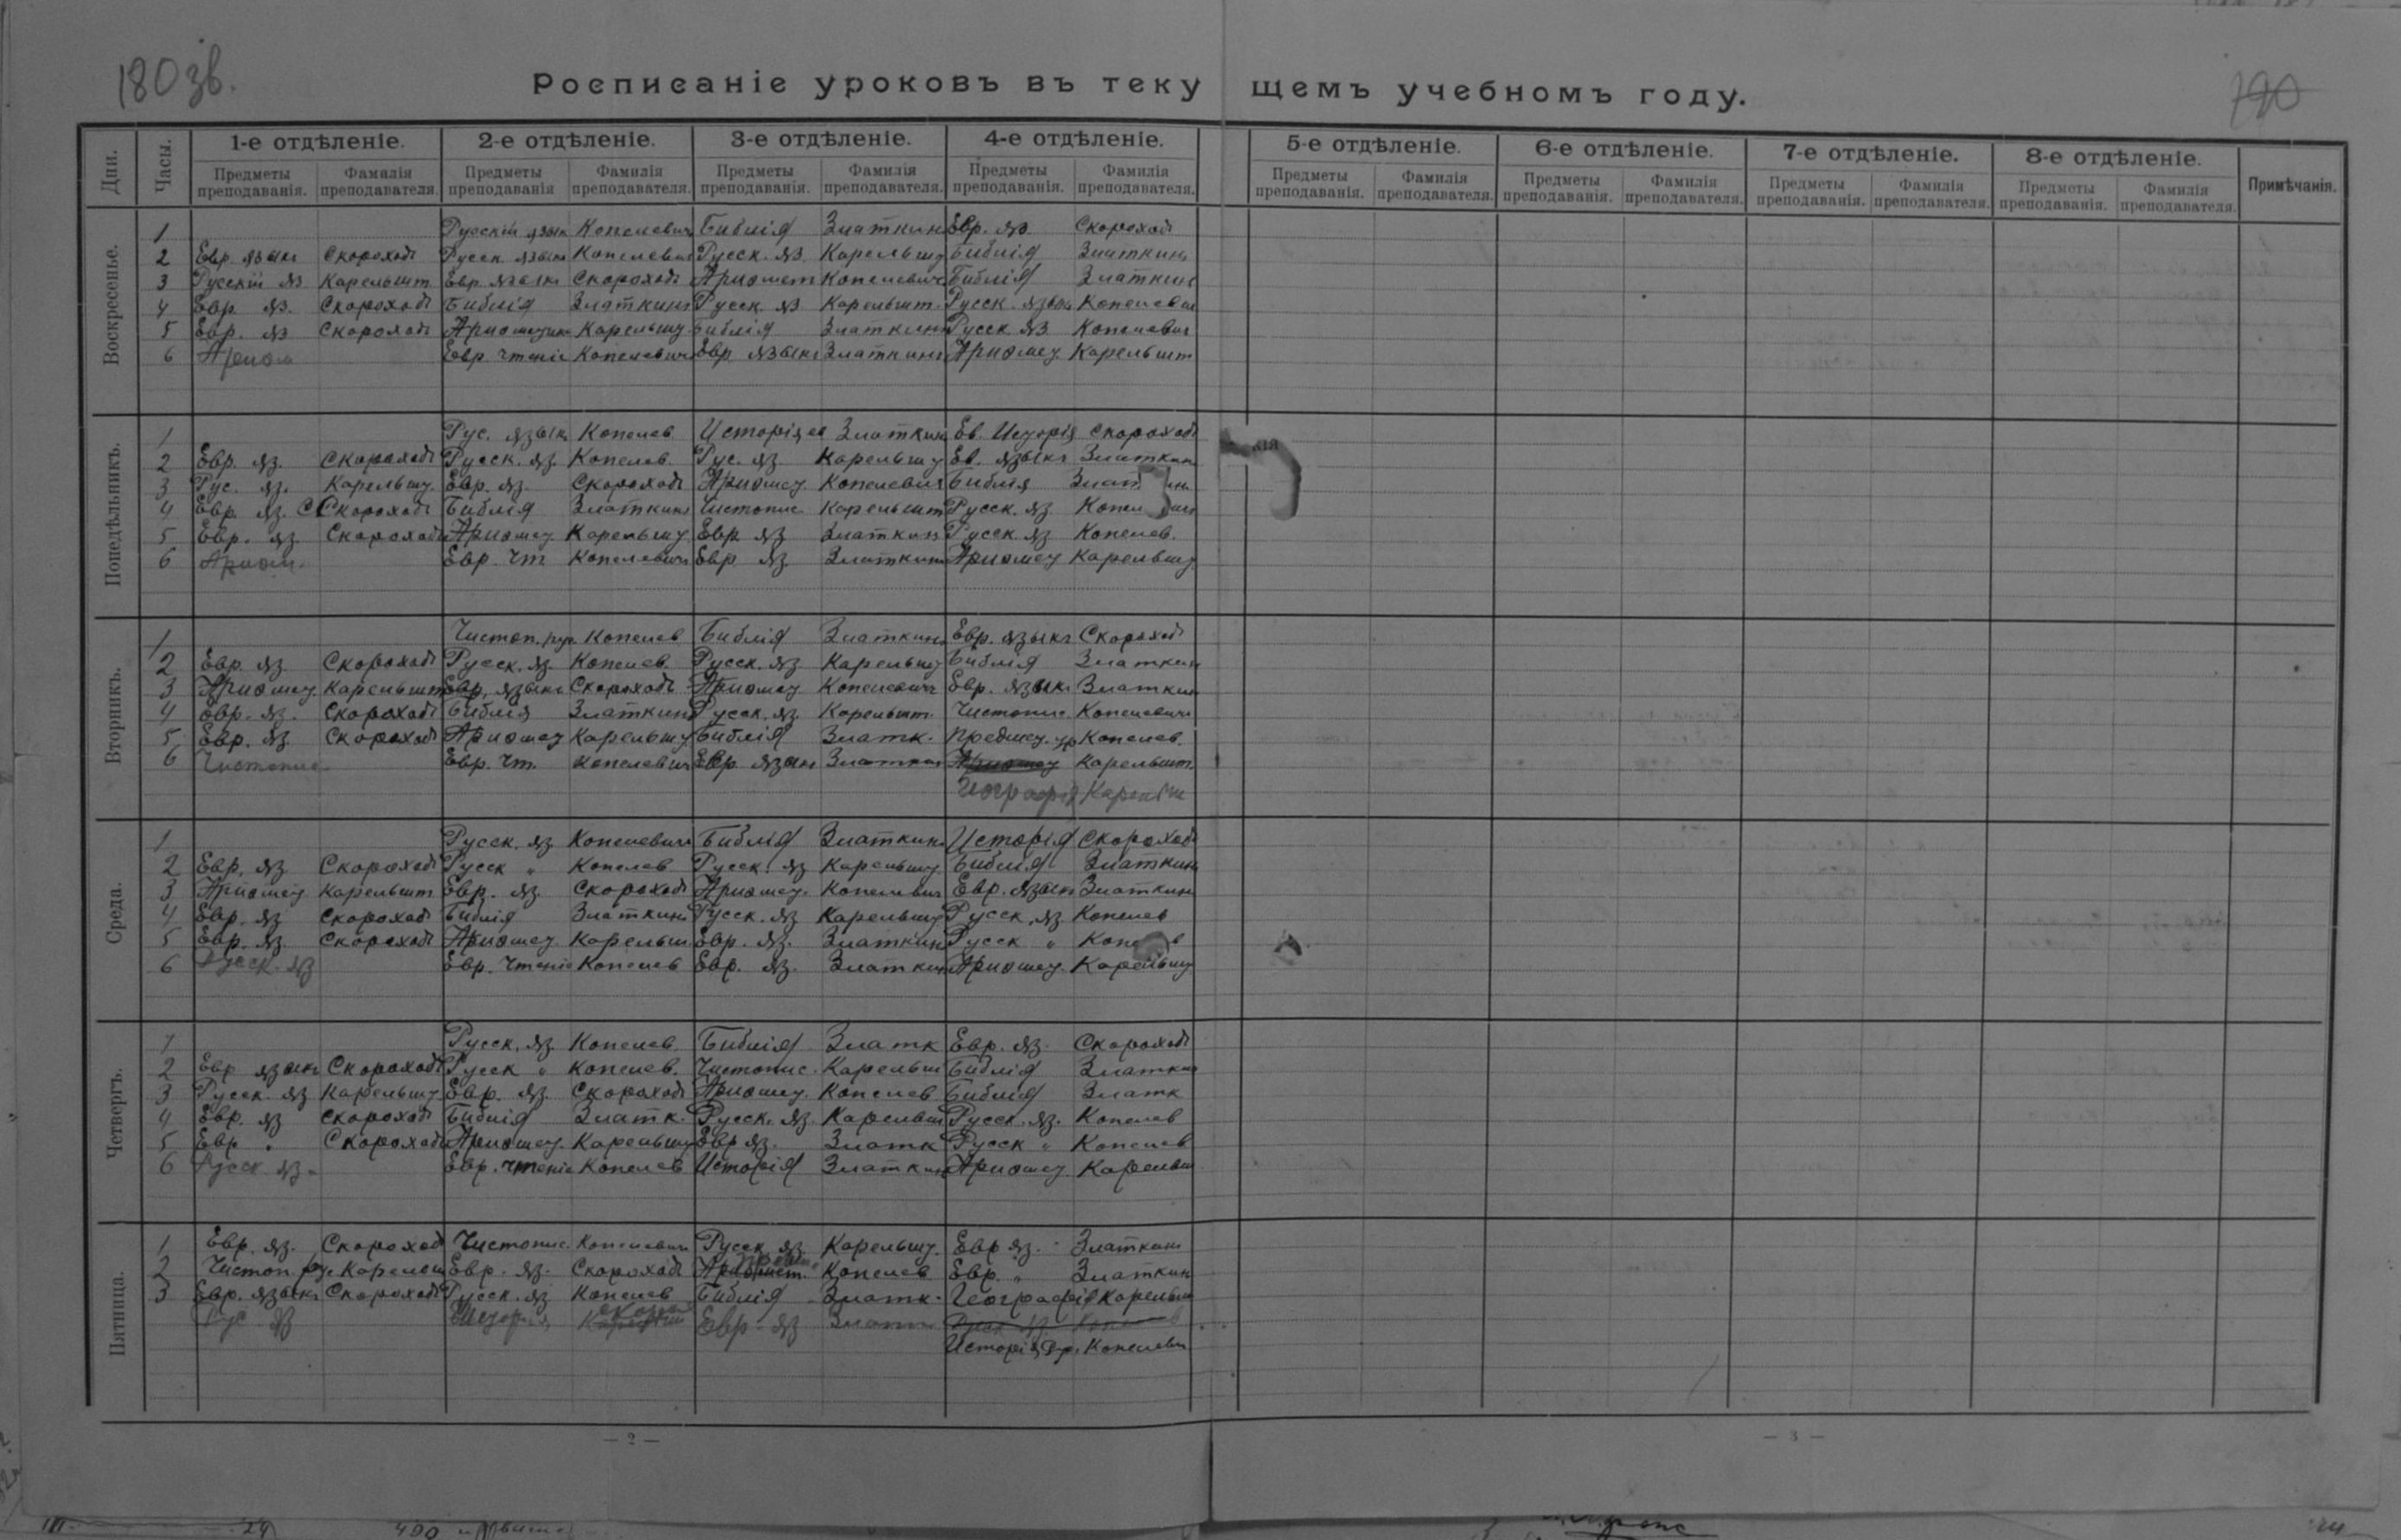 180 зв.
190
Росписаніе уроковъ въ теку щемъ учебномъ году.
Дни. Часы. 1-е отдѣленіе. 2-е отдѣленіе. 3-е отдѣленіе. 4-е отдѣленіе. 5-е отдѣленіе. 6-е отдѣленіе. 7-е отдѣленіе. 8-е отдѣленіе. Примѣчанія.
Предметы преподаванія. Фамилія преподавателя. Предметы преподаванія Фамилія преподавателя. Предметы преподаванія. Фамилія преподавателя. Предметы преподаванія. Фамилія преподавателя. Предметы преподаванія. Фамилія преподавателя. Предметы преподаванія. Фамилія преподавателя. Предметы преподаванія. Фамилія преподавателя. Предметы преподаванія. Фамилія преподавателя.
Воскресенье.
1 Русскій язык Копелевич Библія Златкин Евр. яз Скороходъ
2 Евр. языкъ Скороходъ Русск. языкъ Копелевич Русск. яз. Карельшт Библія Златкинъ
3 Русскій яз Карельшт. Евр. языкъ Скороходъ Ариѳмет Копелевичъ Библія Златкин
4 Евр. яз. Скороходъ Библія Златкинъ Русск. яз Карельшт. Русск. языкъ Копелевич
5 Евр. яз Скороходъ Ариѳметик Карельшт Библія Златкинъ Русск яз Копелевич
6 Ариѳм Евр. чтеніе Копелевичъ Евр языкъ Златкинъ Ариѳмет. Карельшт
Понедѣльникъ.
1 Рус. языкъ Копелев. Исторія ев Златкин Ев. Исторія Скороходъ
2 Евр. яз. Скороходъ Русск. яз. Копелев. Рус. яз Карельшт Ев. языкъ Златкин
3 Рус. яз. Карельшт. Евр. яз. Скороходъ Ариѳмет. Копелевич Библія Злат ин
4 Евр. яз. Скороходъ Библія Златкинъ Чистопис. Карельшт Русск. яз Копел
5 Евр. яз. Скороходъ Ариѳмет Карельшт. Евр яз Златкин Русск. яз Копелев.
6 Ариѳм. Евр. чт Копелевичъ Евр яз Златкинъ Ариѳмет Карельшт
Вторникъ.
1 Чистоп. рус Копелев Библія Златкинъ Евр. языкъ Скороходъ
2 Евр. яз Скороходъ Русск. яз. Копелев. Русск. яз Карельшт Библія Златкин
3 Ариѳмет. Карельшт Евр. языкъ Скороходъ Ариѳмет Копелевичъ Евр. языкъ Златкин
4 Евр. яз. Скороходъ Библія Златкинъ Русск. яз. Карельшт. Чистопис. Копелевичъ
5 Евр. яз. Скороходъ Ариѳмет Карельшт Библія Златк. Предмет. ур Копелев.
6 Чистопис Евр. чт. Копелевич Евр языкъ Златкин Ариѳмет Карельшт.
Географія Карельш
Среда.
1 Русск. яз Копелевичъ Библія Златкин Исторія Скороходъ
2 Евр. яз Скороходъ Русск " Копелев Русск. яз Карельшт. Библія Златкинъ
3 Ариѳмет Карельшт Евр. яз. Скороходъ Ариѳмет. Копелевич Евр. языкъ Златкин
4 Евр. яз Скороход Библія Златкинъ Русск. яз Карельшт Русск. яз Копелев
5 Евр. яз Скороходъ Ариѳмет. Карельш. Евр. яз. Златкин Русск "
6 Русск. яз Евр. чтеніе Копелев Евр. яз. Златкин Ариѳмет. Карельшт
Четвергъ.
1 Русск. яз. Копелев. Библія Златк Евр. яз. Скороходъ
2 Евр языкъ Скороходъ Русск " Копелев. Чистопис. Карельш Библія Златкин
3 Русск. яз Карельшт Евр. яз. Скороходъ Ариѳмет. Копелев Библія Златк
4 Евр. яз Скороходъ Библія Златк. Русск. яз. Карельш Русск. яз. Копелев
5 Евр " Скороходъ Ариѳмет. Карельшт Евр яз. Златк Русск " Копелев
6 Русск. яз. Евр. чтеніе Копелев Исторія Златкин Ариѳмет. Карельш
Пятница.
1 Евр. яз. Скороход Чистопис. Копелевич Русск. яз. Карельшт. Евр яз. Златкин
2 Чистоп. рус Карельш Евр. яз. Скороходъ Ариѳмет. Копелев Евр. " Златкин
3 Евр. языкъ Скороходъ Русск. яз Копелев Библія Златк. Географія Карельш
Рус яз Исторія Евр. яз Златк
Исторія Копелевич
— 2 — — 3 —